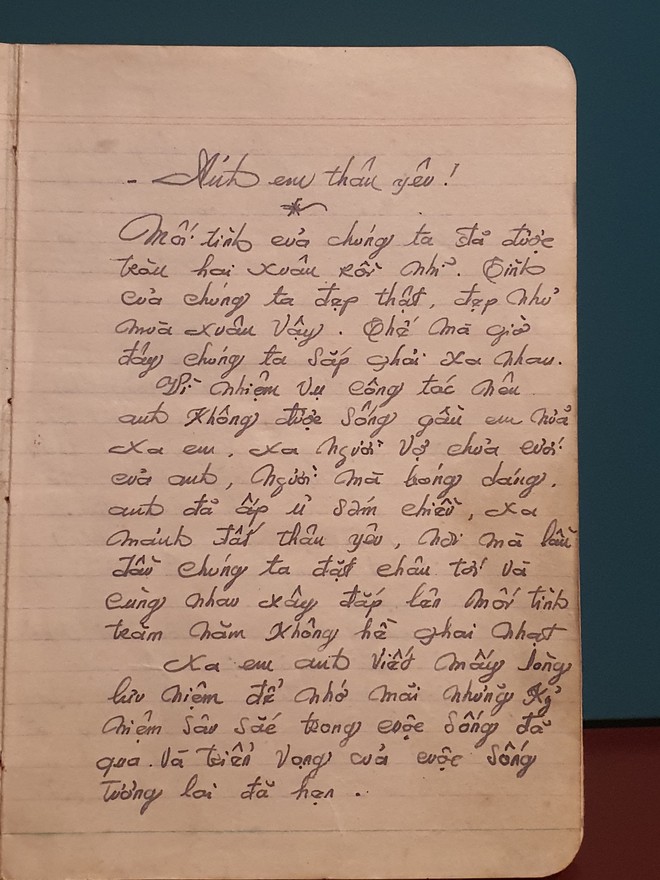 - Ánh em thân yêu!
Mối tình của chúng ta đã được
tròn hai xuân rồi nhỉ. Tình
của chúng ta đẹp thật, đẹp như
mùa xuân vậy. Thế mà giờ
đây chúng ta sắp phải xa nhau.
Vì nhiệm vụ công tác nên
anh không được sống gần em nữa
xa em, xa người vợ chưa cưới
của anh, người mà bóng dáng.
anh đã ấp ủ sớm chiều, xa
mảnh đất thân yêu, nơi mà lần
đầu chúng ta đặt chân tới và
cùng nhau xây đắp lên mối tình
trăm năm không hề phai nhạt
Xa em anh viết mấy dòng
lưu niệm để nhớ mãi những kỷ
niệm sâu sắc trong cuộc sống đã
qua. Và triển vọng của cuộc sống
tương lai đã hẹn.